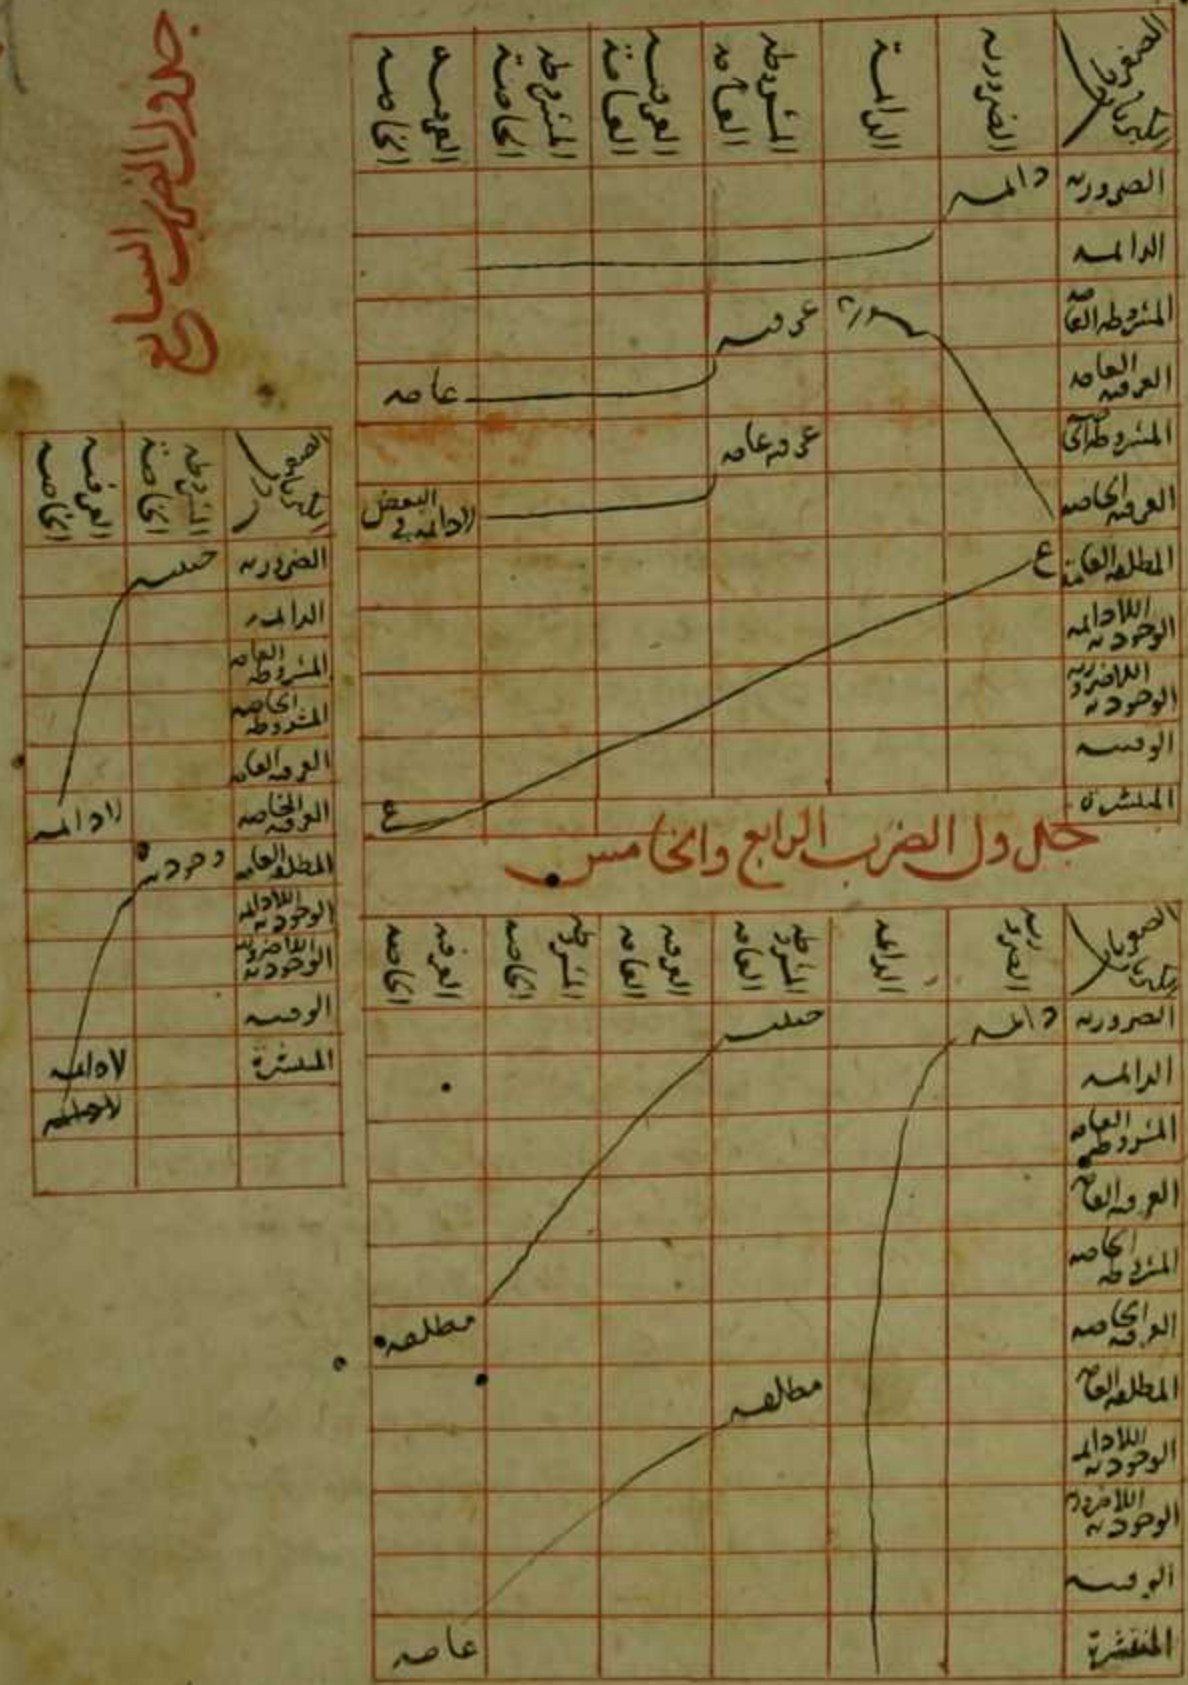 جدول الضرب السابع
الصغريات الكبريات
الضرورية
الدائمة
المشروطة العامة
العرفية العامة
المشروطة الخاصة
العرفية الخاصة
الضرورية
دائمة
الدائمة
المشروطة العامة
عرفية
العرفية العامة
عامة
المشروطة الخاصة
عرفية عامة
العرفية الخاصة
لادائمة في البعض
المطلقة العامة
ع
الوجودية اللادائمة
الوجودية اللاضرورية
الوقتية
المنتشرة
ع
جدول الضرب الرابع والخامس
الصغريات الكبريات
الضرورية
الدائمة
المشروطة العامة
العرفية العامة
المشروطة الخاصة
العرفية الخاصة
الضرورية
دائمة
حينية
الدائمة
المشروطة العامة
العرفية العامة
المشروطة الخاصة
العرفية الخاصة
مطلقة
المطلقة العامة
مطلقة
الوجودية اللادائمة
الوجودية اللاضرورية
الوقتية
المنتشرة
عامة
المشروطة الخاصة
العرفية الخاصة
الضرورية
حينية
الدائمة
المشروطة العامة
المشروطة الخاصة
العرفية العامة
العرفية الخاصة
لادائمة
المطلقة العامة
وجودية
الوجودية اللادائمة
الوجودية اللاضرورية
الوقتية
المنتشرة
لادائمة